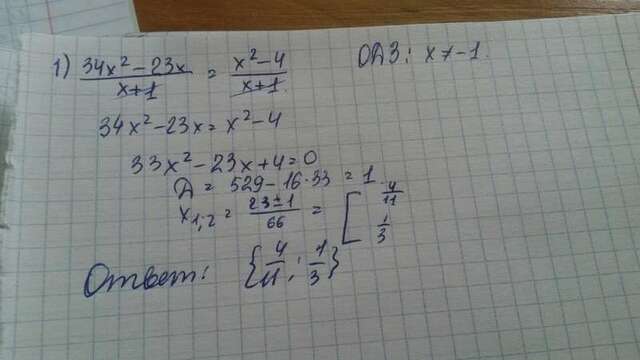 1) (34x² - 23x)/(x+1) = (x² - 4)/(x+1) ОДЗ: x ≠ -1.
34x² - 23x = x² - 4
33x² - 23x + 4 = 0
Д = 529 - 16·33 = 1
x₁;₂ = (23±1)/66 = [ 4/11 1/3
Ответ: {4/11; 1/3}